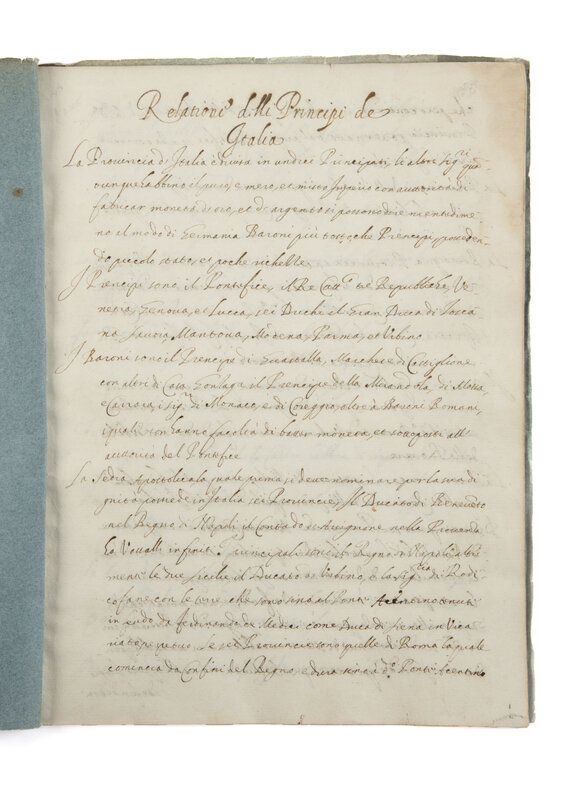 Relationi delli Principi de
Italia
La Provincia d'Italia è divisa in undici Principati, le altre sig.ri qua
-tunque habbino il puro, e mero, et misto Imperio con autorità di
fabricar moneta di oro, et di argento si possono dire nientedime
no al modo di Germania Baroni più tosto che Prencipi, posseden
do piccolo stato, et poche richezze
I Principi sono il Pontefice, il Re Catt.co tre Republiche, Ve
netia, Genova, et Lucca, sei Duchi il Gran Duca di Tosca
na Savoia Mantova, Modena, Parma, et Urbino
I Baroni sono il Prencipe di Guastalla, Marchese di Castiglione
con altri di Casa Gonzaga il Prencipe della Mirandola, di Massa,
e Carrara, i Sig.ri di Monaco, e di Coreggio, oltre à Baroni Romani,
i quali non hanno facoltà di batter moneta, et sottoposti all'
autorità del Pontefice
La Sedia Apostolica la quale prima si deve nominare per la sua di
gnità possede in Italia sei Provincie, Il Ducato di Benevento
nel Regno di Napoli il Contado di Avignone nella Provenza
ha Vassalli infiniti principali sono il Regno di Napoli altri
menti le due Sicilie il Ducato di Urbino, e la Sig.ria di Radi
cofane con le terre che sono sino al Ponte tenuti
in feudo da Ferdinando de Medici come Duca di Siena in Vica
riato perpetuo. Le sei Provincie sono quelle di Roma la quale
comincia da confini del Regno e dura sino à d.o Ponte Acentino